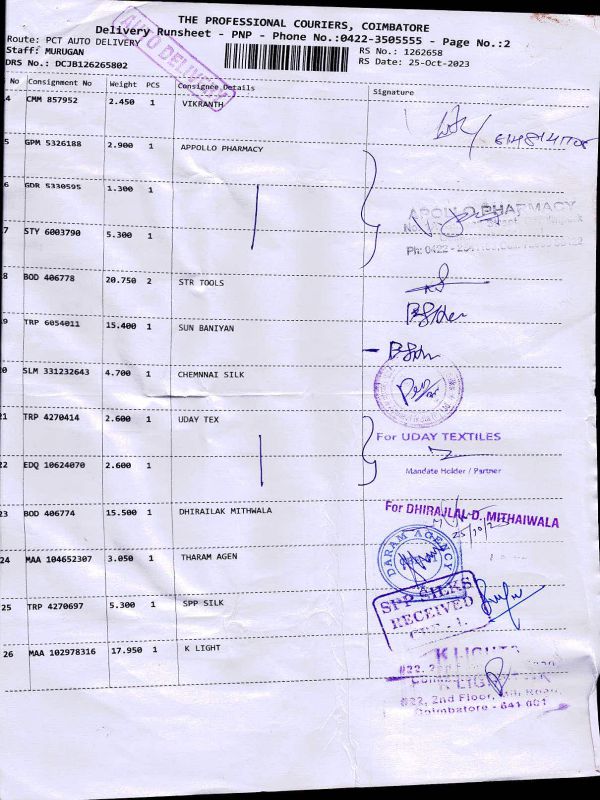 THE PROFESSIONAL COURIERS, COIMBATORE
Delivery Runsheet - PNP - Phone No.:0422-3505555 - Page No.:2
Route: PCT AUTO DELIVERY
Staff: MURUGAN
DRS No.: DCJB126265802
RS No.: 1262658
RS Date: 25-Oct-2023
AUTO DELIVERY
No Consignment No Weight PCS Consignee Details Signature
4 CMM 857952 2.450 1 VIKRANTH
5 GPM 5326188 2.900 1 APPOLLO PHARMACY
6 GDR 5330595 1.300 1
APOLLO PHARMACY
7 STY 6003790 5.300 1
Ph: 0422 -
8 BOD 406778 20.750 2 STR TOOLS
9 TRP 6054011 15.400 1 SUN BANIYAN
0 SLM 331232643 4.700 1 CHEMNNAI SILK
21 TRP 4270414 2.600 1 UDAY TEX
For UDAY TEXTILES
Mandate Holder / Partner
22 EDQ 10624070 2.600 1
23 BOD 406774 15.500 1 DHIRAILAK MITHWALA
For DHIRAJLAL D. MITHAIWALA
24 MAA 104652307 3.050 1 THARAM AGEN
DARAM AGENCY
25 TRP 4270697 5.300 1 SPP SILK
SPP SILKS
RECEIVED
26 MAA 102978316 17.950 1 K LIGHT
K LIGHT
#22, 2nd Floor, Mill Road,
Coimbatore - 641 001